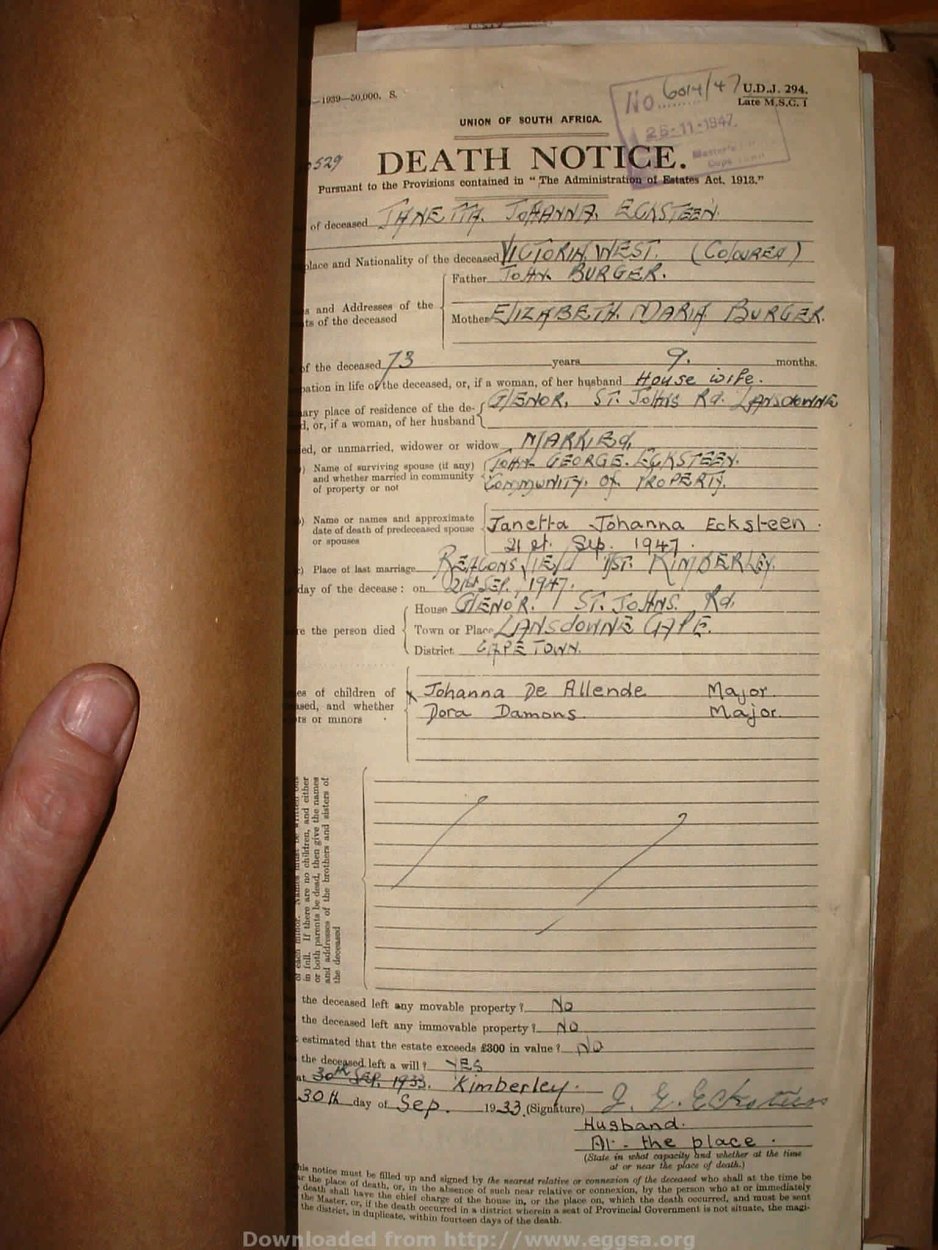 —1939—50,000. S.
No 6014/47
U.D.J. 294.
Late M.S.C. 1
UNION OF SOUTH AFRICA.
26-11-1947
529
DEATH NOTICE.
Pursuant to the Provisions contained in "The Administration of Estates Act, 1913."
of deceased JANETTA. JOHANNA. ECKSTEEN.
place and Nationality of the deceased VICTORIA WEST. (COLOURED)
Father JOHN BURGER.
s and Addresses of the
ts of the deceased
Mother ELIZABETH. MARIA BURGER.
of the deceased 73 years 9. months.
pation in life of the deceased, or, if a woman, of her husband House wife.
ary place of residence of the de- GLENOR, ST. JOHNS Rd. LANSDOWNE
d, or, if a woman, of her husband
ed, or unmarried, widower or widow MARRIED,
) Name of surviving spouse (if any) JOHN GEORGE. ECKSTEEN.
and whether married in community COMMUNITY. OF PROPERTY.
of property or not
) Name or names and approximate Janetta Johanna Ecksteen.
date of death of predeceased spouse
or spouses 21st. Sep. 1947.
c) Place of last marriage BEACONSFIELD DST. KIMBERLEY.
day of the decease: on 21st SEP, 1947.
House GLENOR. ST. JOHNS. Rd.
re the person died Town or Place LANSDOWNE CAPE.
District CAPE TOWN.
es of children of Johanna De Allende Major.
ased, and whether Dora Damons. Major.
rs or minors
of each minor. Names must be written out
in full. If there are no children, and either
or both parents be dead, then give the names
and addresses of the brothers and sisters of
the deceased
the deceased left any movable property? No
the deceased left any immovable property? NO
estimated that the estate exceeds £300 in value? NO
the deceased left a will? YES
at 30th SEP. 1933. Kimberley.
30th day of Sep. 1933. (Signature) J. G. Ecksteen
Husband.
At - the place.
(State in what capacity and whether at the time
at or near the place of death.)
his notice must be filled up and signed by the nearest relative or connexion of the deceased who shall at the time be
r the place of death, or, in the absence of such near relative or connexion, by the person who at or immediately
death shall have the chief charge of the house in, or the place on, which the death occurred, and must be sent
the Master, or, if the death occurred in a district wherein a seat of Provincial Government is not situate, the magi-
the district, in duplicate, within fourteen days of the death.
Downloaded from http://www.eggsa.org